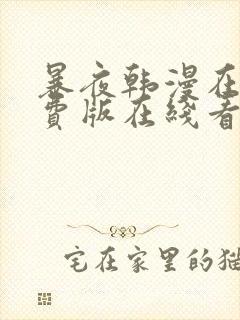 暴夜韩漫在
费版在线看
宅在家里的猫